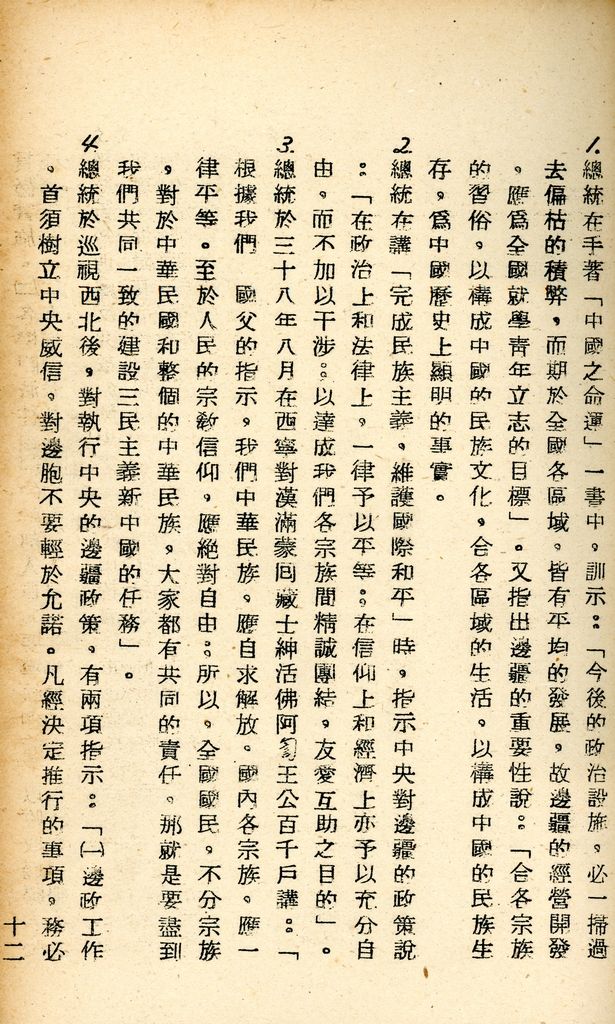 1.總統在手著「中國之命運」一書中，訓示：「今後的政治設施，必一掃過
去偏枯的積弊，而期於全國各區域，皆有平均的發展，故邊疆的經營開發
，應爲全國就學青年立志的目標」。又指出邊疆的重要性說：「合各宗族
的習俗，以構成中國的民族文化，合各區域的生活，以構成中國的民族生
存，爲中國歷史上顯明的事實。
2.總統在講「完成民族主義，維護國際和平」時，指示中央對邊疆的政策說
：「在政治上和法律上，一律予以平等：在信仰上和經濟上亦予以充分自
由，而不加以干涉：以達成我們各宗族間精誠團結，友愛互助之目的」。
3.總統於三十八年八月在西寧對漢滿蒙回藏士紳活佛阿訇王公百千戶講：「
根據我們　國父的指示，我們中華民族，應自求解放。國內各宗族，應一
律平等。至於人民的宗敎信仰，應絕對自由：所以，全國國民，不分宗族
，對於中華民國和整個的中華民族，大家都有共同的責任。那就是要盡到
我們共同一致的建設三民主義新中國的任務」。
4.總統於巡視西北後，對執行中央的邊疆政策，有兩項指示：「㈠邊政工作
。首須樹立中央威信，對邊胞不要輕於允諾。凡經決定推行的事項，務必
十二